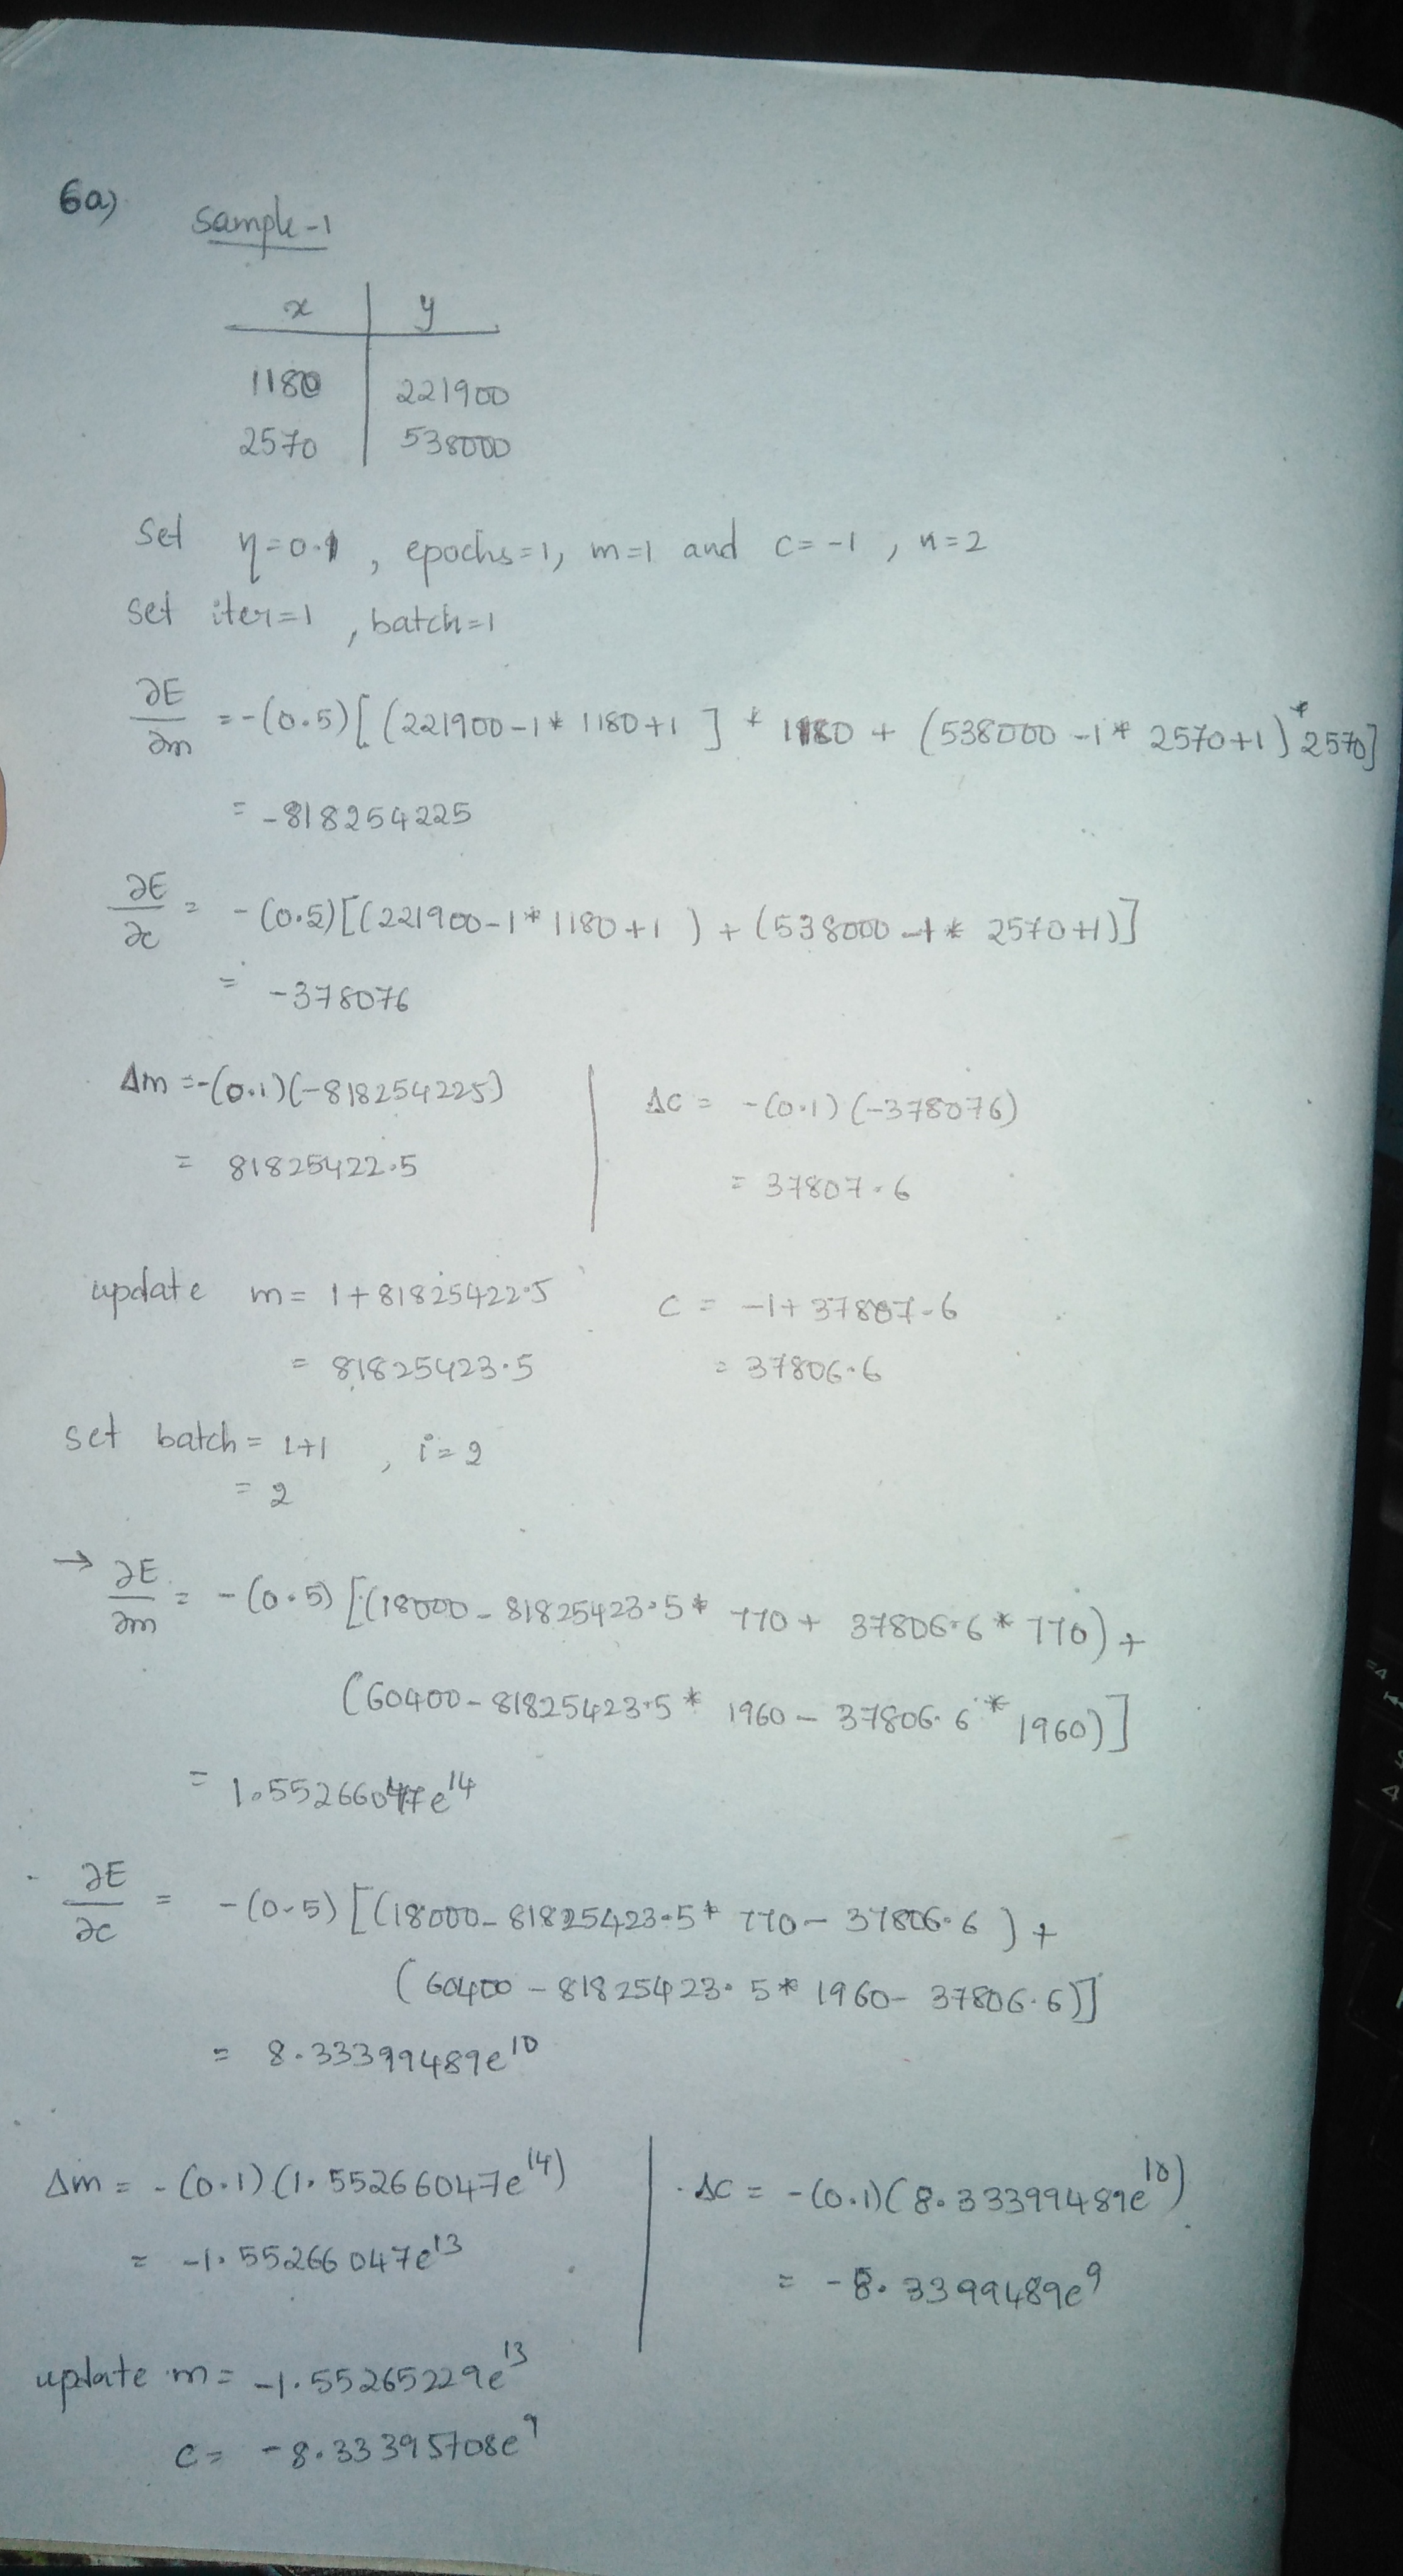 6a)
Sample-1
x y
1180 221900
2570 538000
Set η=0.1, epochs=1, m=1 and c=-1, n=2
Set iter=1, batch=1
∂E/∂m = -(0.5)[(221900-1*1180+1]*1180+(538000-1*2570+1)*2570]
= -818254225
∂E/∂c = -(0.5)[(221900-1*1180+1)+(538000-1*2570+1)]
= -378076
Δm=-(0.1)(-818254225) Δc= -(0.1)(-378076)
= 81825422.5 = 37807.6
update m= 1+81825422.5 c= -1+37807.6
= 81825423.5 = 37806.6
set batch= 1+1, i=2
= 2
→ ∂E/∂m = -(0.5)[(18000-81825423.5*770+37806.6*770)+
(60400-81825423.5*1960-37806.6*1960)]
= 1.55266047e^14
∂E/∂c = -(0.5)[(18000-81825423.5*770-37806.6)+
(60400-81825423.5*1960-37806.6)]
= 8.33399489e^10
Δm= -(0.1)(1.55266047e^14) Δc= -(0.1)(8.33399489e^10)
= -1.55266047e^13 = -8.3399489e^9
update m= -1.55265229e^13
c= -8.33395708e^9